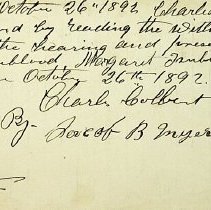 October 26th 1892. Charlie
nd by reading the with
the hearing and prese
Margaret
October 26th 1892.
Charles Colbert
By-
Jacob B Myer